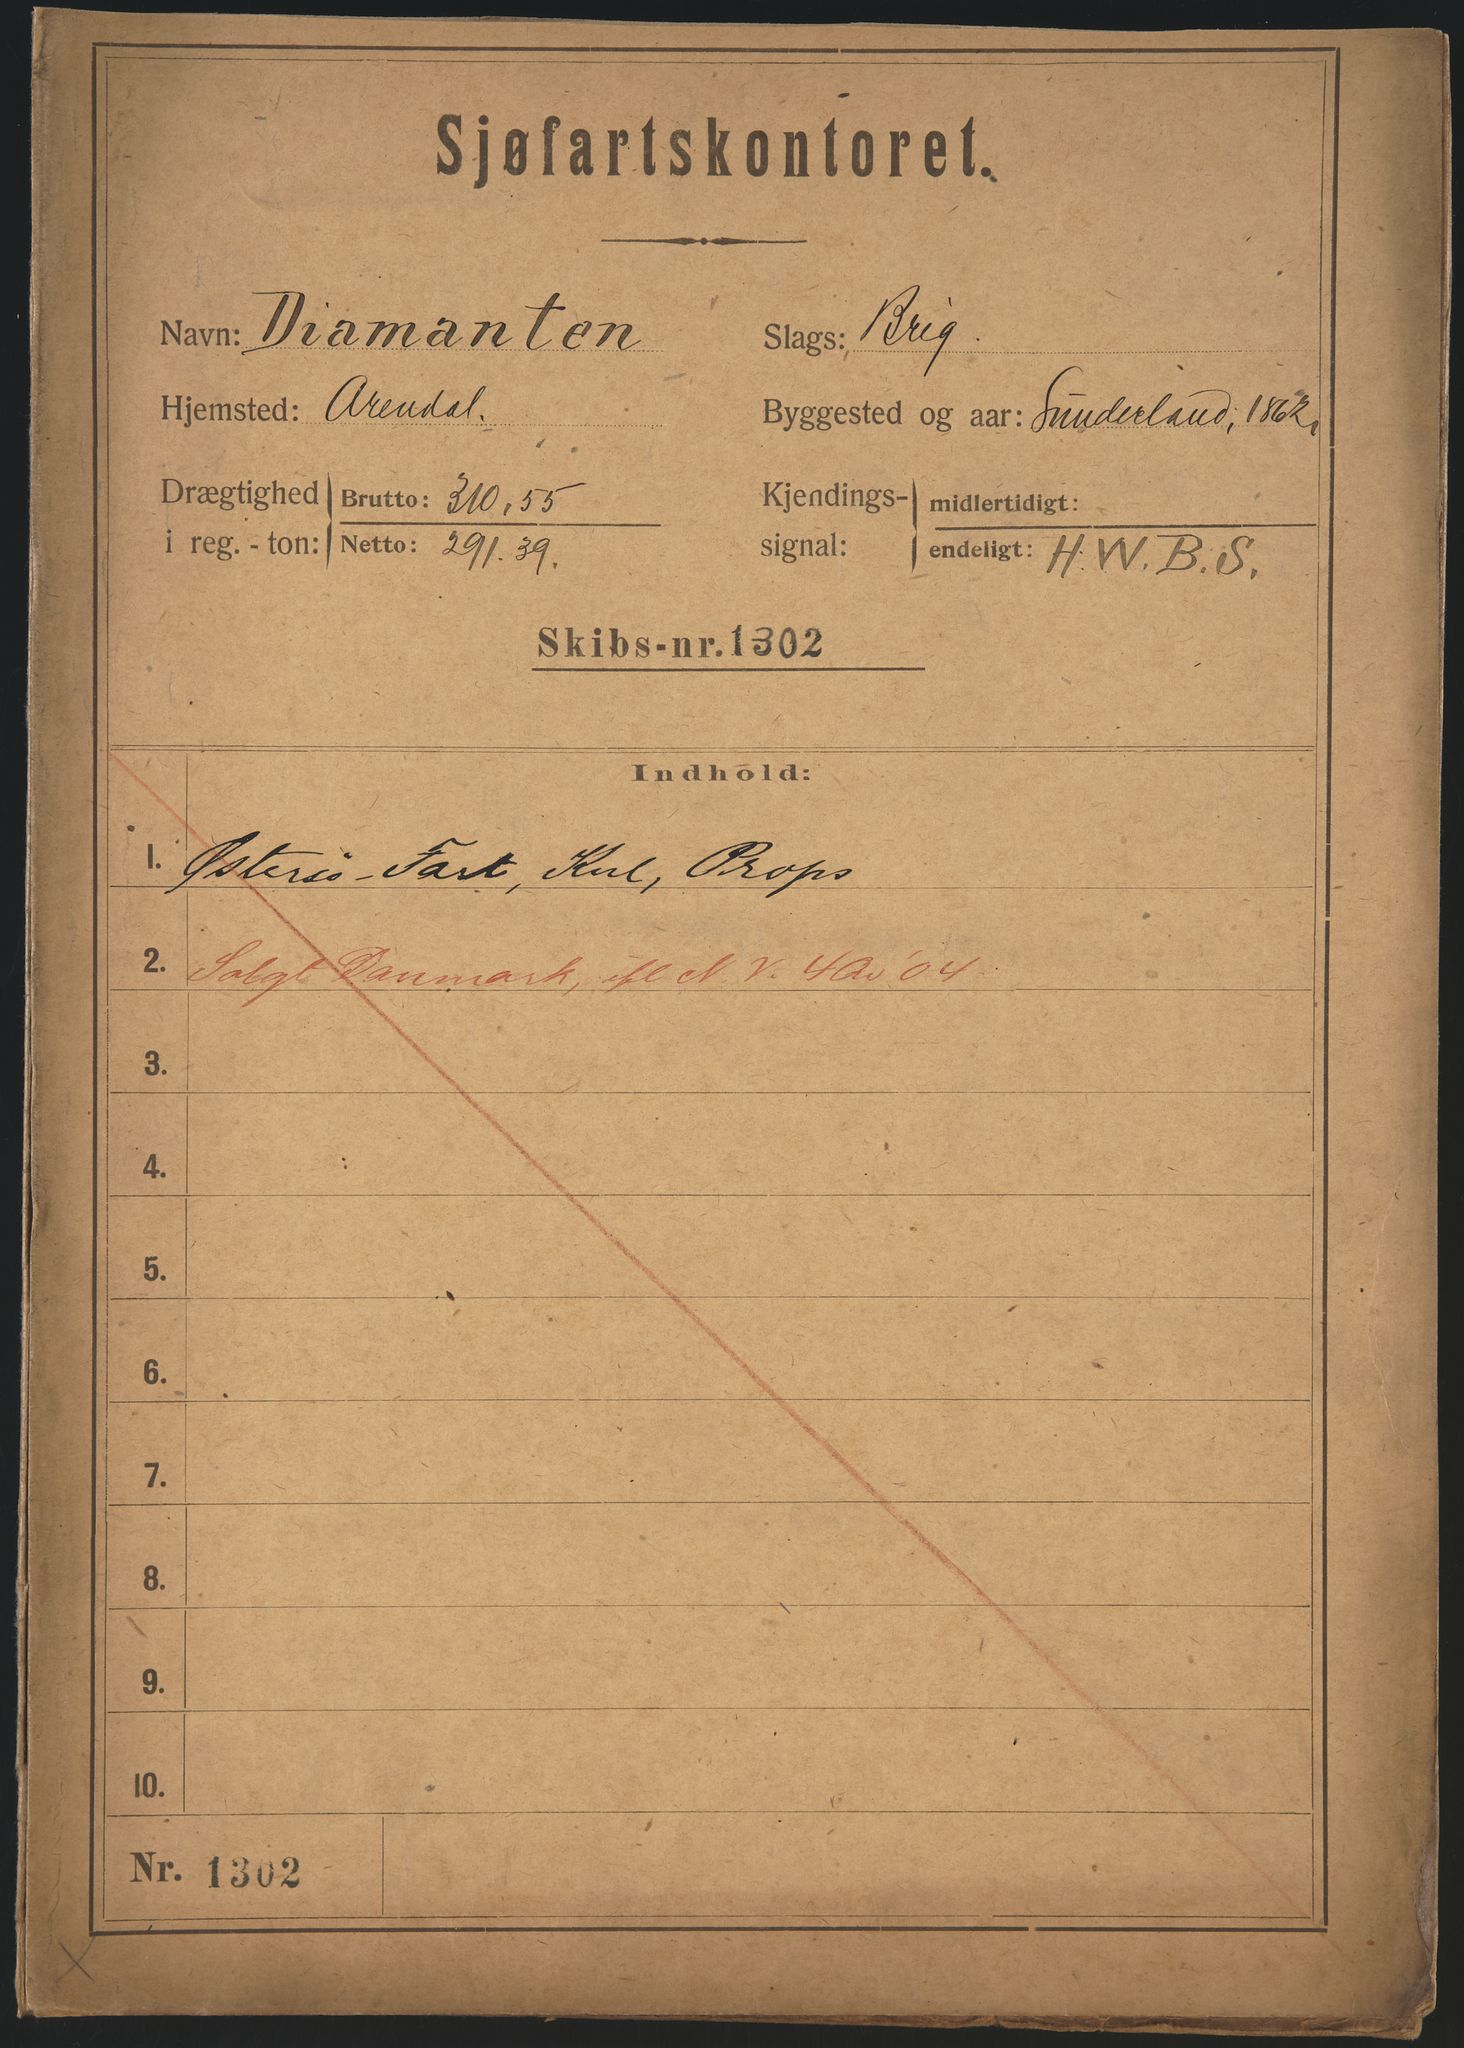 Sjøfartskontoret.
Navn: Diamanten
Slags: Brig.
Hjemsted: Arendal.
Byggested og aar: Sunderland, 1862.
Drægtighed i reg.-ton: Brutto: 310,55
Netto: 291.39.
Kjendings-signal: midlertidigt:
endeligt: H.W.B.S.
Skibs-nr. 1302
Indhold:
1. Østersö-Fart, Kul, Props
2. Solgt Danmark, ifl N. V. 4 '04
3.
4.
5.
6.
7.
8.
9.
10.
Nr. 1302